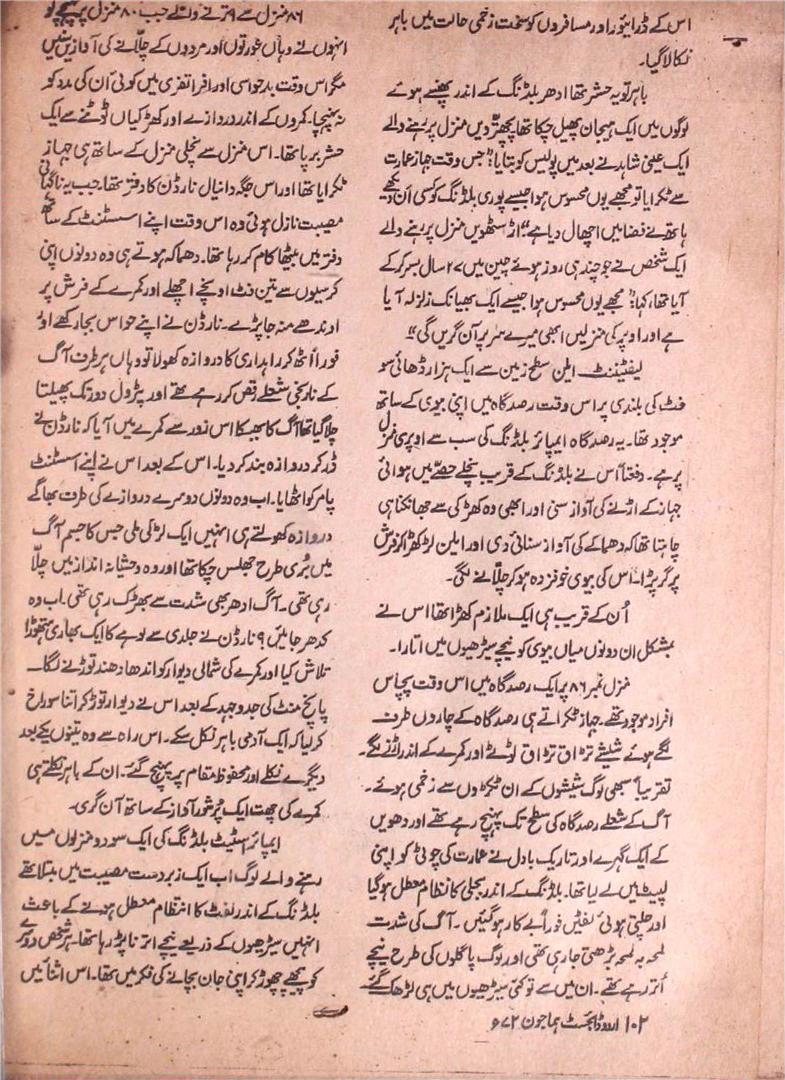 اس کے ڈرائیور اور مسافروں کو سخت زخمی حالت میں باہر
نکالا گیا۔
باہر تو یہ حشر تھا ادھر بلڈنگ کے اندر پھنسے ہوئے
لوگوں میں ایک ہیجان پھیل چکا تھا پچھترویں منزل پر رہنے والے
ایک عینی شاہد نے بعد میں پولیس کو بتایا "جس وقت جہاز عمارت
سے ٹکرایا تو مجھے یوں محسوس ہوا جیسے پوری بلڈنگ کو کسی اَن دیکھے
ہاتھ نے فضا میں اچھال دیا ہے" اڑسٹھویں منزل پر رہنے والے
ایک شخص نے جو چند ہی روز ہوئے چین میں ۲۷ سال بسر کر کے
آیا تھا، کہا: "مجھے یوں محسوس ہوا جیسے ایک بھیانک زلزلہ آیا
ہے اور اوپر کی منزلیں ابھی میرے سر پر آن گریں گی"
لیفٹیننٹ ایلن سطح زمین سے ایک ہزار ڈھائی سو
فٹ کی بلندی پر اس وقت رصدگاہ میں اپنی بیوی کے ساتھ
موجود تھا۔ یہ رصدگاہ ایمپائر بلڈنگ کی سب سے اوپری منزل
پر ہے۔ دفعتاً اس نے بلڈنگ کے قریب نچلے حصّے میں ہوائی
جہاز کے اڑنے کی آواز سنی اور ابھی وہ کھڑکی سے جھانکنا ہی
چاہتا تھا کہ دھماکے کی آواز سنائی دی اور ایلن لڑکھڑا کر فرش
پر گر پڑا۔ اس کی بیوی خوفزدہ ہو کر چلّانے لگی۔
اُن کے قریب ہی ایک ملازم کھڑا تھا اس نے
بمشکل ان دونوں میاں بیوی کو نیچے سیڑھیوں میں اتارا۔
منزل نمبر ۸۶ پر ایک رصدگاہ میں اس وقت پچاس
افراد موجود تھے۔ جہاز ٹکراتے ہی رصدگاہ کے چاروں طرف
لگے ہوئے شیشے تڑاق تڑاق ٹوٹے اور کمرے کے اندر اڑنے لگے۔
تقریباً سبھی لوگ شیشوں کے ان ٹکڑوں سے زخمی ہوئے۔
آگ کے شعلے رصدگاہ کی سطح تک پہنچ رہے تھے اور دھویں
کے ایک گہرے اور تاریک بادل نے عمارت کی چوٹی کو اپنی
لپیٹ میں لے لیا تھا۔ بلڈنگ کے اندر بجلی کا نظام معطل ہو گیا
اور چلتی ہوئی لفٹیں فوراً بے کار ہو گئیں۔ آگ کی شدت
لمحہ بہ لمحہ بڑھتی جا رہی تھی اور لوگ پاگلوں کی طرح نیچے
اُتر رہے تھے۔ ان میں سے تو کئی سیڑھیوں میں ہی لڑھک گئے
۸۶ منزل سے اترنے والے جب ۸۰ منزل پر پہنچے تو
انہوں نے وہاں عورتوں اور مردوں کے چلّانے کی آوازیں سنیں
مگر اس وقت بدحواسی اور افراتفری میں کوئی ان کی مدد کو
نہ پہنچا۔ کمروں کے اندر دروازے اور کھڑکیاں ٹوٹنے سے ایک
حشر برپا تھا۔ اس منزل سے نچلی منزل کے ساتھ ہی جہاز
ٹکرایا تھا اور اس جگہ دانیال نارڈن کا دفتر تھا۔ جب یہ ناگہانی
مصیبت نازل ہوئی وہ اس وقت اپنے اسسٹنٹ کے ساتھ
دفتر میں بیٹھا کام کر رہا تھا۔ دھماکہ ہوتے ہی وہ دونوں اپنی
کرسیوں سے تین فٹ اونچے اچھلے اور کمرے کے فرش پر
اوندھے منہ جا پڑے۔ نارڈن نے اپنے حواس بجا رکھے اور
فوراً اٹھ کر راہداری کا دروازہ کھولا تو وہاں ہر طرف آگ
کے نارنجی شعلے رقص کر رہے تھے اور پٹرول دور تک پھیلتا
چلا گیا تھا آگ کا بھبکا اس زور سے کمرے میں آیا کہ نارڈن نے
ڈر کر دروازہ بند کر دیا۔ اس کے بعد اس نے اپنے اسسٹنٹ
پامر کو اٹھایا۔ اب وہ دونوں دوسرے دروازے کی طرف بھاگے
دروازہ کھولتے ہی انہیں ایک لڑکی ملی جس کا جسم آگ
میں بُری طرح جھلس چکا تھا اور وہ وحشیانہ انداز میں چلّا
رہی تھی۔ آگ ادھر بھی شدت سے بھڑک رہی تھی۔ اب وہ
کدھر جائیں؟ نارڈن نے جلدی سے لوہے کا ایک بھاری ہتھوڑا
تلاش کیا اور کمرے کی شمالی دیوار کو اندھا دھند توڑنے لگا۔
پانچ منٹ کی جدوجہد کے بعد اس نے دیوار توڑ کر اتنا سوراخ
کر لیا کہ ایک آدمی باہر نکل سکے۔ اس راہ سے وہ تینوں یکے بعد
دیگرے نکلے اور محفوظ مقام پر پہنچ گئے۔ ان کے باہر نکلتے ہی
کمرے کی چھت ایک پُرشور آواز کے ساتھ آن گری۔
ایمپائر سٹیٹ بلڈنگ کی ایک سو دو منزلوں میں
رہنے والے لوگ اب ایک زبردست مصیبت میں مبتلا تھے
بلڈنگ کے اندر لفٹ کا انتظام معطل ہونے کے باعث
انہیں سیڑھیوں کے ذریعے نیچے اترنا پڑ رہا تھا۔ ہر شخص دوسرے
کو پیچھے چھوڑ کر اپنی جان بچانے کی فکر میں تھا۔ اس اثنا میں
۱۰۲ اردو ڈائجسٹ ہما جون ۷۲ء